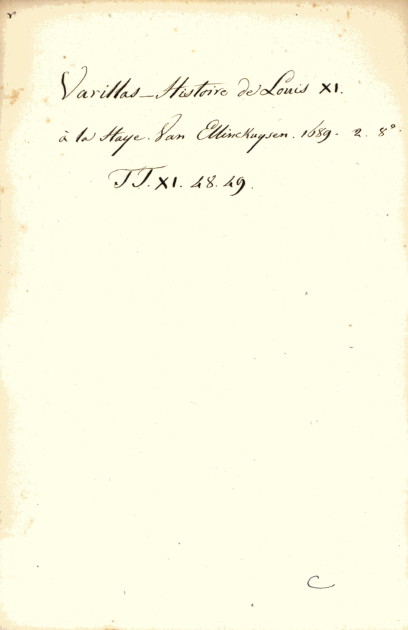 Varillas – Histoire de Louis XI.
à la Haye. Van Ellinckuysen. 1689. 2. 8°
TT. XI. 48. 49.
C